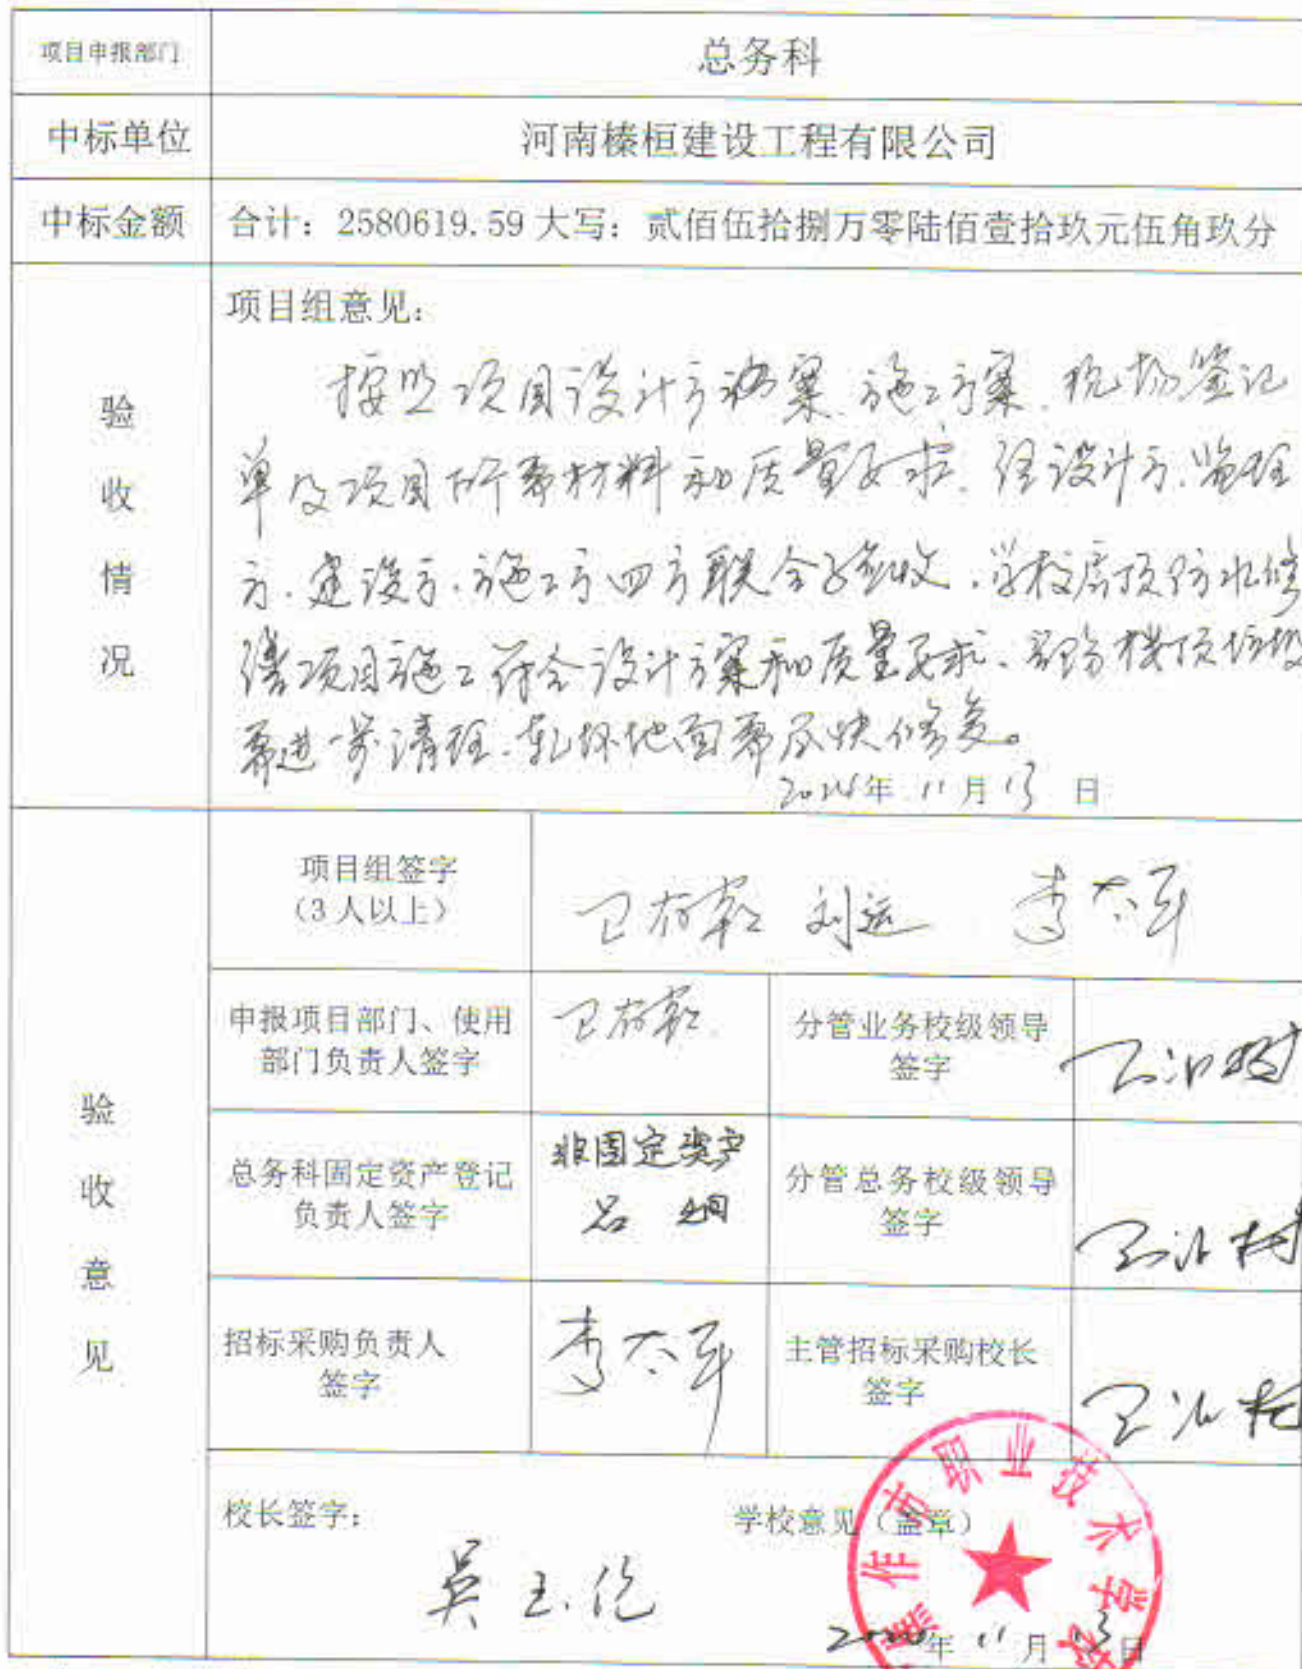 项目申报部门 总务科
中标单位 河南榛桓建设工程有限公司
中标金额 合计：2580619.59 大写：贰佰伍拾捌万零陆佰壹拾玖元伍角玖分
验收情况
项目组意见：
按照项目设计方案、施工方案、现场签记
单及项目所需材料和质量要求，经设计方、监理
方、建设方、施工方四方联合验收，学校房顶防水修
缮项目施工符合设计方案和质量要求、部分楼顶垃圾
需进一步清理、轧坏地面需尽快修复。
年 11 月 13 日
验收意见
项目组签字
（3 人以上）
刘运 李太平
申报项目部门、使用
部门负责人签字
分管业务校级领导
签字
总务科固定资产登记
负责人签字
非固定资产
分管总务校级领导
签字
招标采购负责人
签字
李太平
主管招标采购校长
签字
校长签字：
学校意见（盖章）
吴玉伦
焦作市职业技术学校
年 11 月 13 日